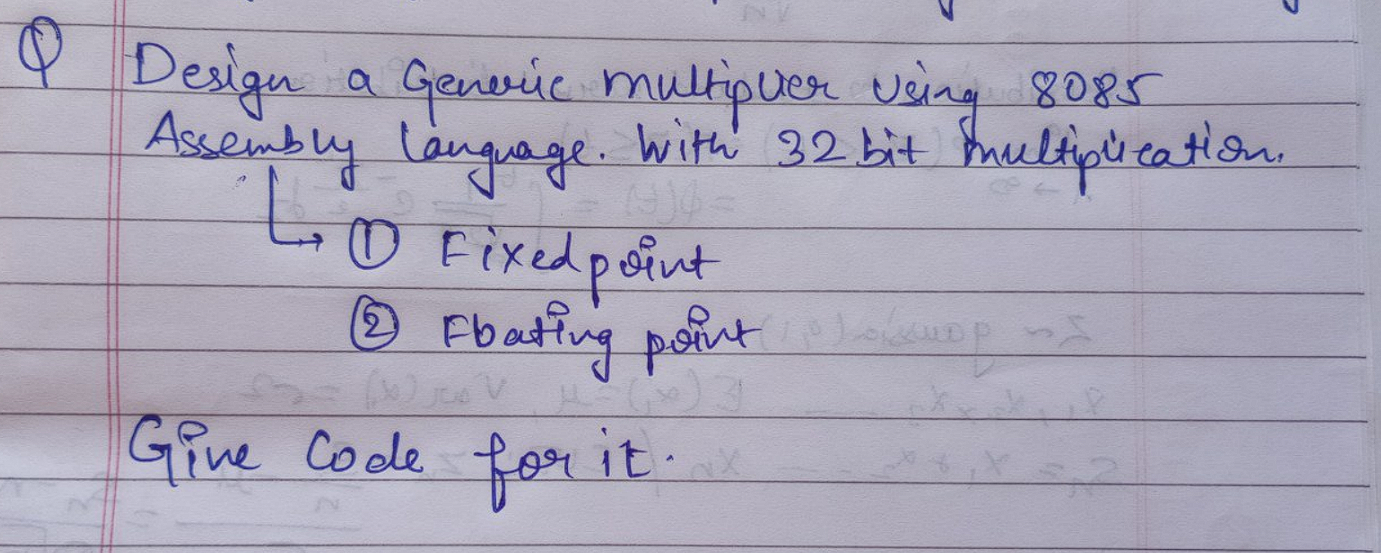 Q Design a Generic multiplier using 8085
Assembly language. With 32 bit multiplication.
① Fixed point
② Floating point
Give Code for it.